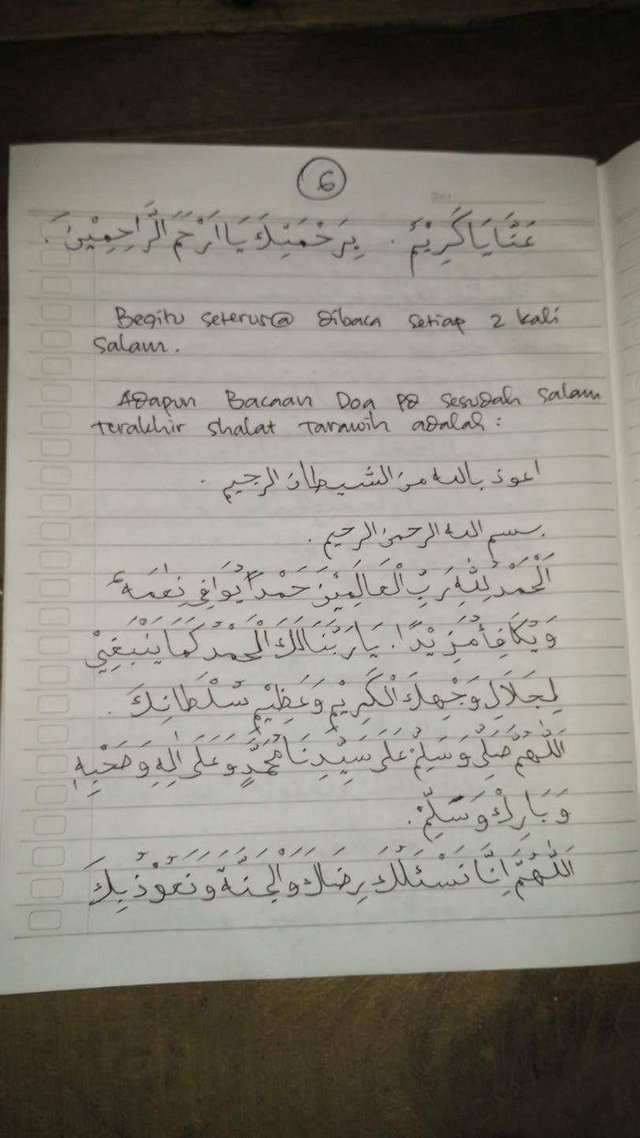 6
عَنَّا يَا كَرِيْمُ . بِرَحْمَتِكَ يَا اَرْحَمَ الرَّاحِمِيْنَ .
Begitu seterus@ dibaca setiap 2 kali
salam.
Adapun Bacaan Doa pd sesudah salam
terakhir shalat Tarawih adalah :
اعوذ بالله من الشيطان الرجيم .
بسم الله الرحمن الرحيم .
اَلْحَمْدُ لِلّٰهِ رَبِّ الْعَالَمِيْنَ حَمْدًا يُوَافِى نِعَمَهُ
وَيُكَافِأُ مَزِيْدًا . يَا رَبَّنَا لَكَ الْحَمْدُ كَمَا يَنْبَغِيْ
لِجَلَالِ وَجْهِكَ الْكَرِيْمِ وَعَظِيْمِ سُلْطَانِكَ .
اَللّٰهُمَّ صَلِّ وَسَلِّمْ عَلَى سَيِّدِنَا مُحَمَّدٍ وَعَلَى اٰلِهِ وَصَحْبِهِ
وَبَارِكْ وَسَلِّمْ .
اَللّٰهُمَّ اِنَّا نَسْئَلُكَ رِضَاكَ وَالْجَنَّةَ وَنَعُوْذُ بِكَ